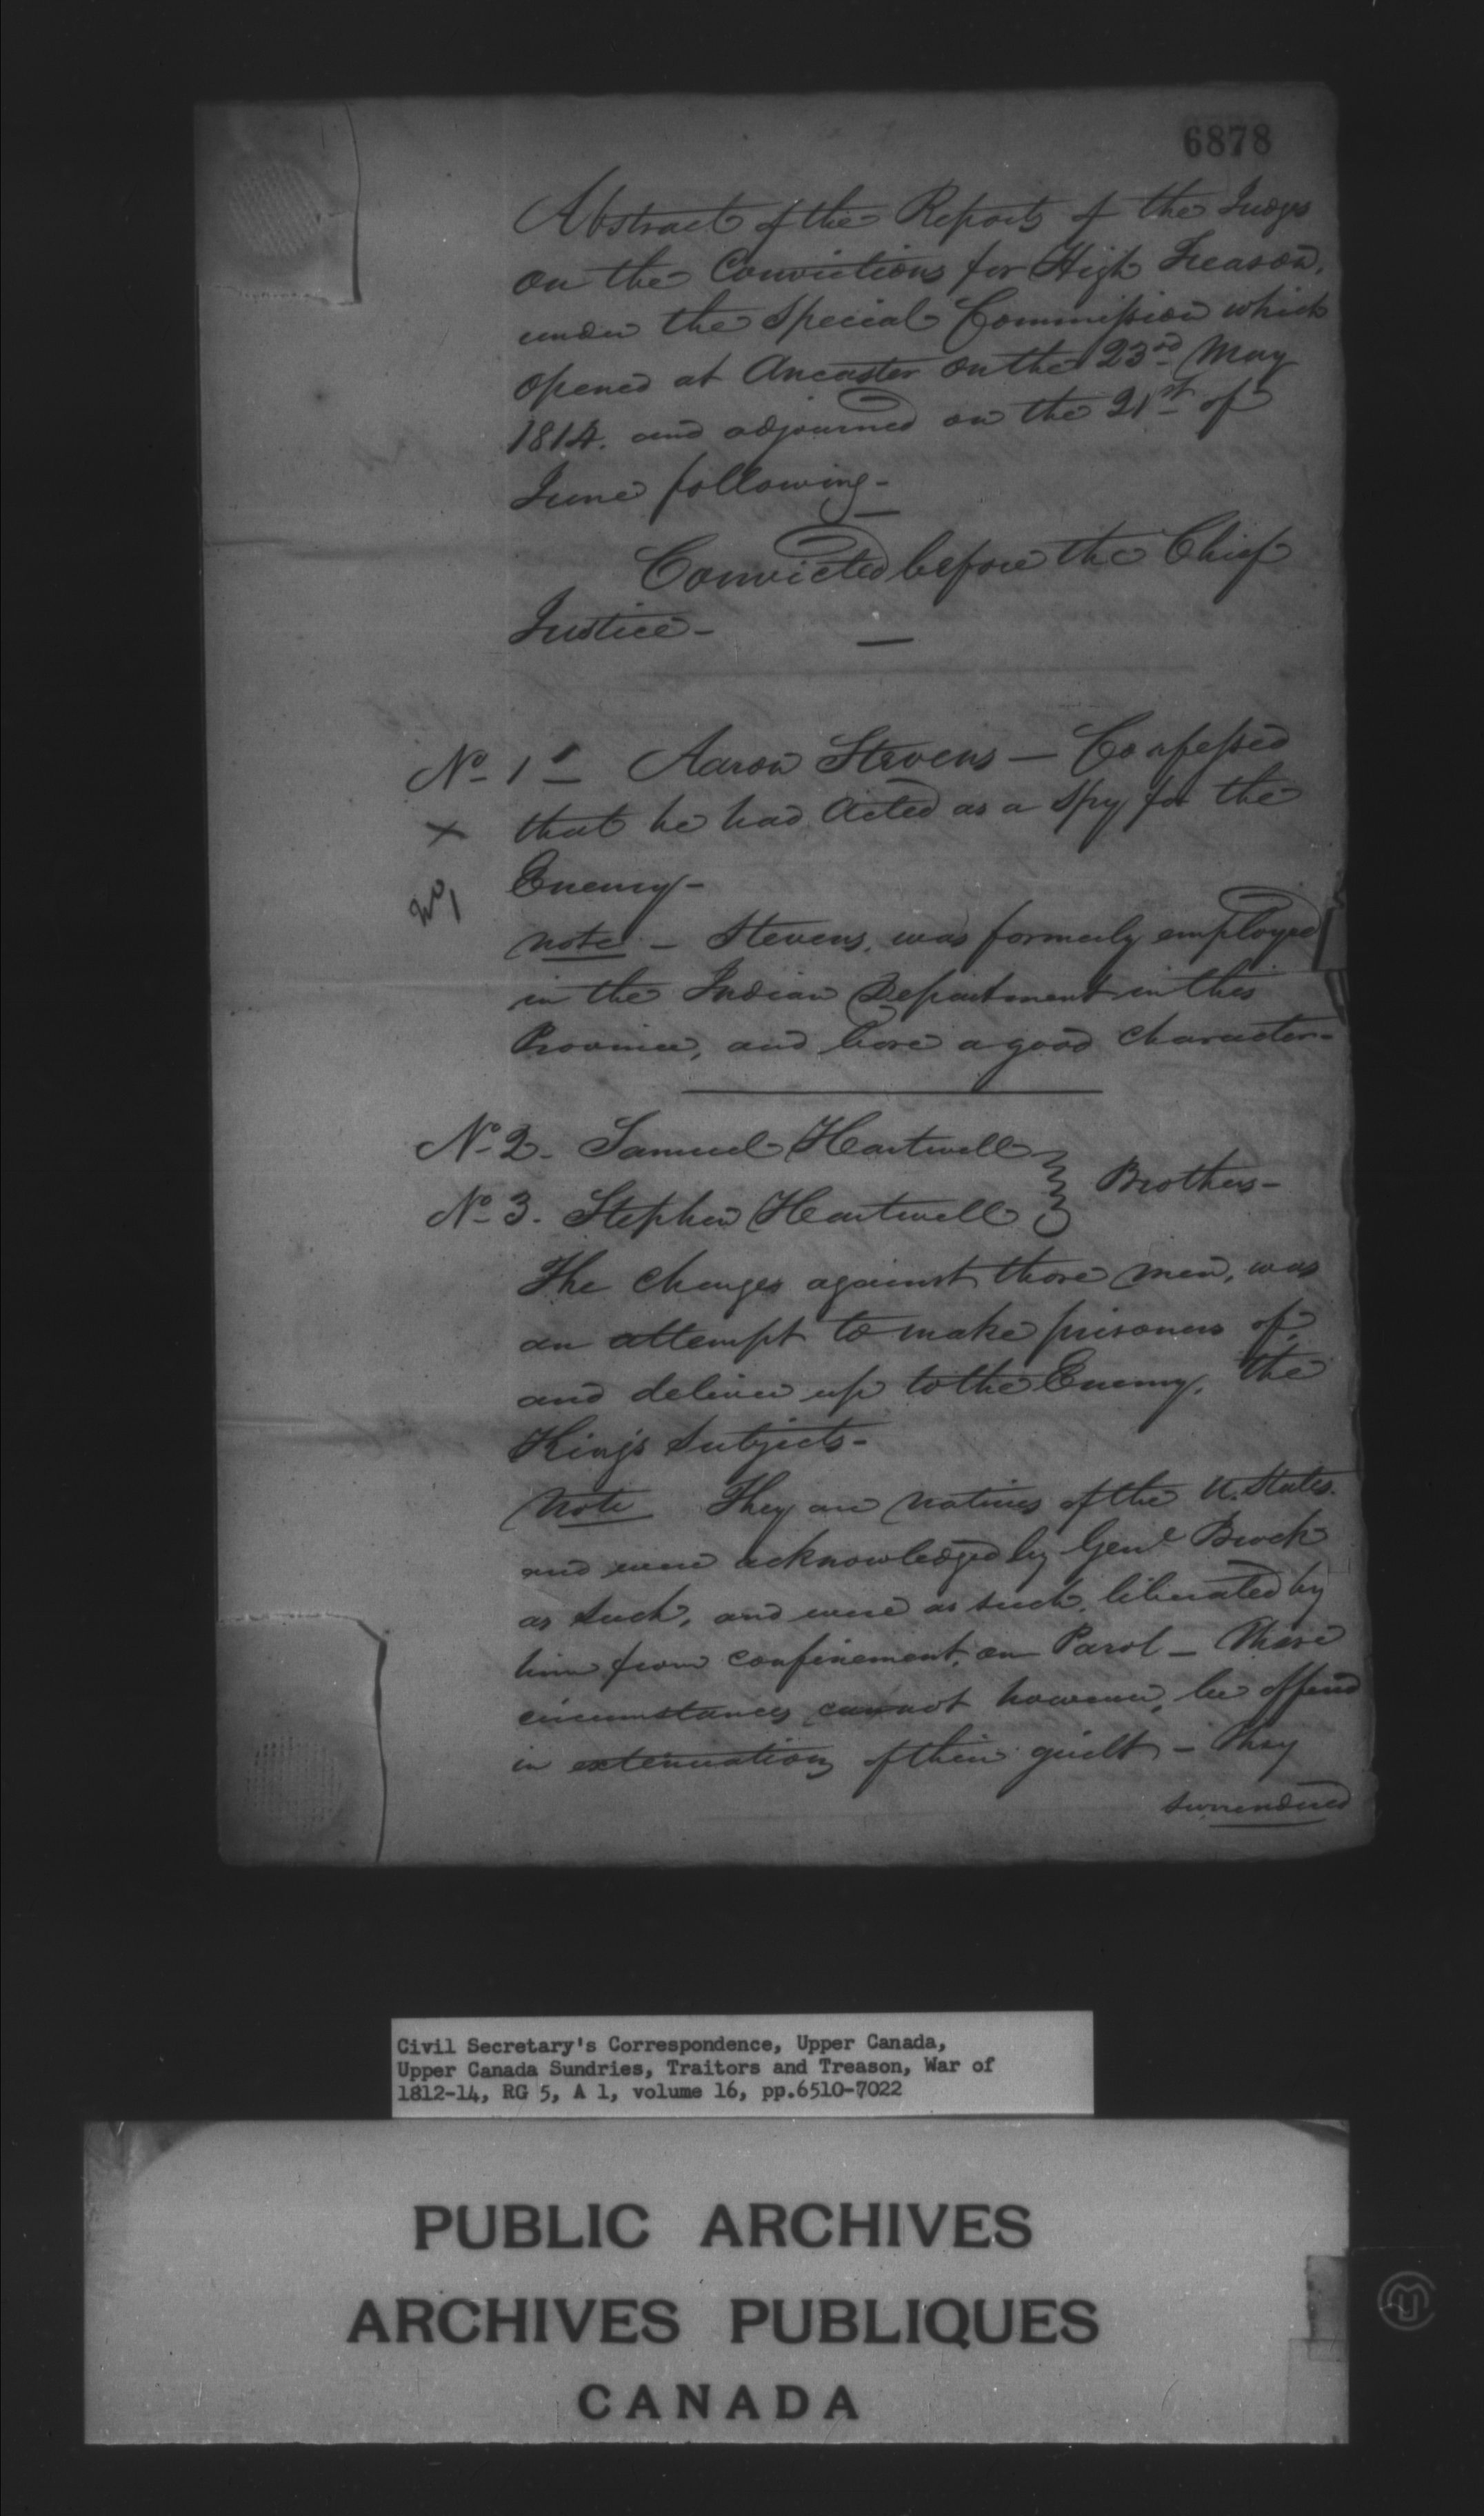 6878
Abstract of the Reports of the Judges
on the Convictions for High Treason,
under the Special Commission which
opened at Ancaster on the 23rd May
1814. and adjourned on the 21st of
June following -
Convicted before the Chief
Justice -
No 1 Aaron Stevens — Confessed
that he had Acted as a Spy for the
Enemy -
Note - Stevens, was formerly employed
in the Indian Department in this
Province, and bore a good Character -
No 2. Samuel Hartwell
Brothers -
No 3. Stephen Hartwell
The Charges against those men, was
an attempt to make prisoners of,
and deliver up to the Enemy, the
King's Subjects -
Note They are Natives of the U. States.
and were acknowledged by Genl Brock
as such, and were as such, liberated by
him from confinement, on Parol - These
circumstances cannot however, be offered
in extenuation of their guilt - They
surrendered
Civil Secretary's Correspondence, Upper Canada,
Upper Canada Sundries, Traitors and Treason, War of
1812-14, RG 5, A 1, volume 16, pp.6510-7022
PUBLIC ARCHIVES
ARCHIVES PUBLIQUES
CANADA